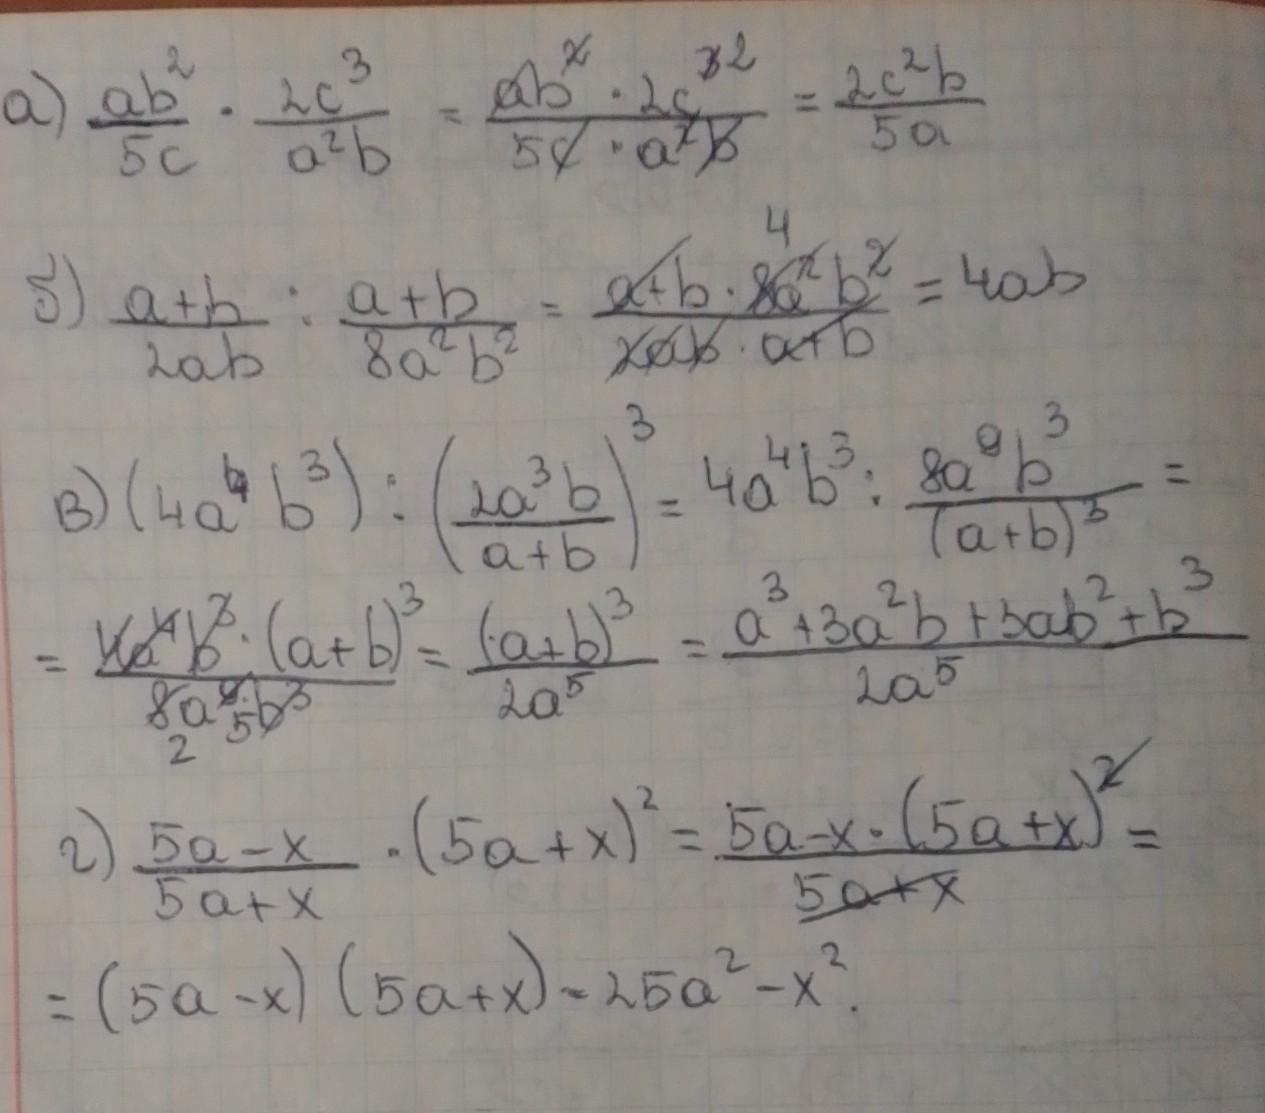 а) ab²/5c · 2c³/a²b = ab² · 2c³ ²/5c · a²b = 2c²b/5a
б) a+b/2ab : a+b/8a²b² = a+b · 8a²b² 4/2ab · a+b = 4ab
в) (4a⁴b³) : (2a³b/a+b)³ = 4a⁴b³ : 8a⁹b³/(a+b)³ =
= 4a⁴b³ · (a+b)³/8a⁹b³ 2 5 = (a+b)³/2a⁵ = a³+3a²b+3ab²+b³/2a⁵
г) 5a-x/5a+x · (5a+x)² = 5a-x · (5a+x)²/5a+x =
= (5a-x) (5a+x) = 25a²-x².